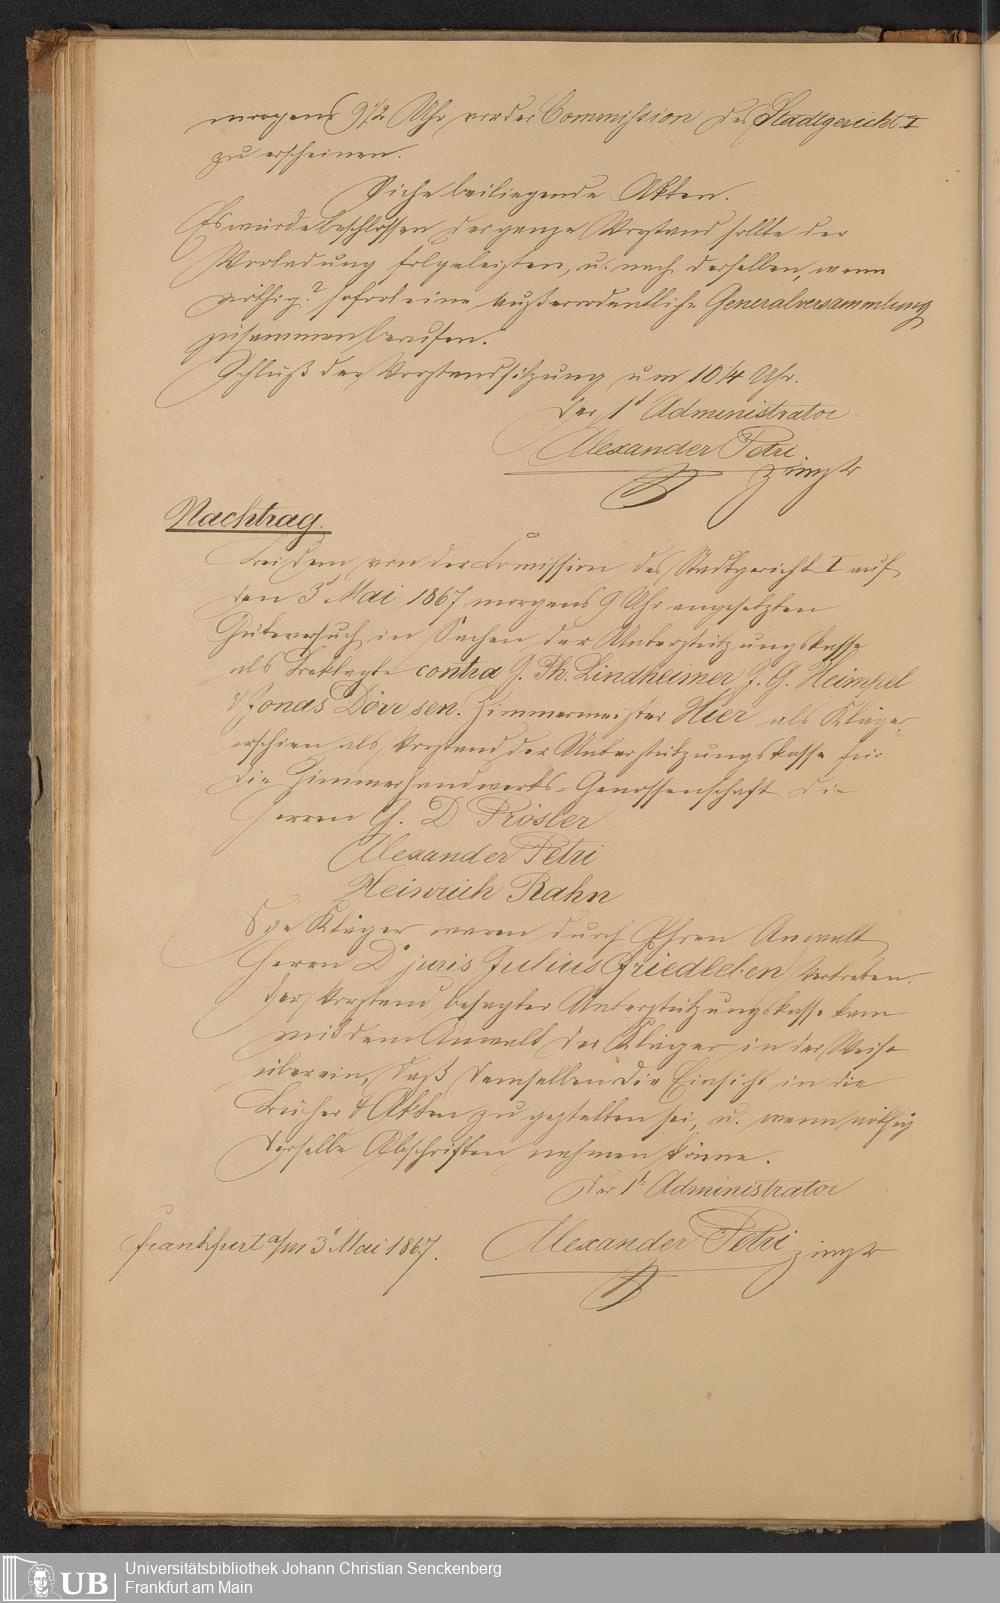 morgens 9 1/2 Uhr vor der Commission des Stadtgericht I
zu erscheinen.
Siehe beiliegende Akten.
Es wurde beschlossen der ganze Vorstand sollte der
Vorladung folgeleisten, u. nach derselben, wenn
nöthig? sofort eine außerordentliche Generalversammlung
zusammenberufen.
Schluß der Vorstandssitzung um 10 1/4 Uhr.
Der 1t Administrator
Alexander Petri
Nachtrag.
Bei dem von der Comission des Stadtgericht I auf
den 3t Mai 1867 morgens 9 Uhr angesetzten
Güteversuch in Sachen der Unterstützungskasse
als Beklagte contra G. Ph. Lindheimer J. G. Heimpel
& Jonas Dörr sen. Zimmermeister Hier als Kläger,
erschien als Vorstand der Unterstützungskasse für
die Zimmerhandwerks-Genossenschaft die
Herren G. D Prösler
Alexander Petri
Heinrich Rahn
Die Kläger waren durch Ihren Anwalt
Herrn Dr juris Julius Friedleben vertreten.
Der Vorstand besagter Unterstützungskasse kam
mit dem Anwalt der Kläger in der Weise
überein, daß demselben die Einsicht in die
Bücher & Akten zu gestatten sei, u. wenn nöthig
derselbe Abschriften nehmen könne.
Der 1t Administrator
Frankfurt a/m 3t Mai 1867. Alexander Petri
UB
Universitätsbibliothek Johann Christian Senckenberg
Frankfurt am Main